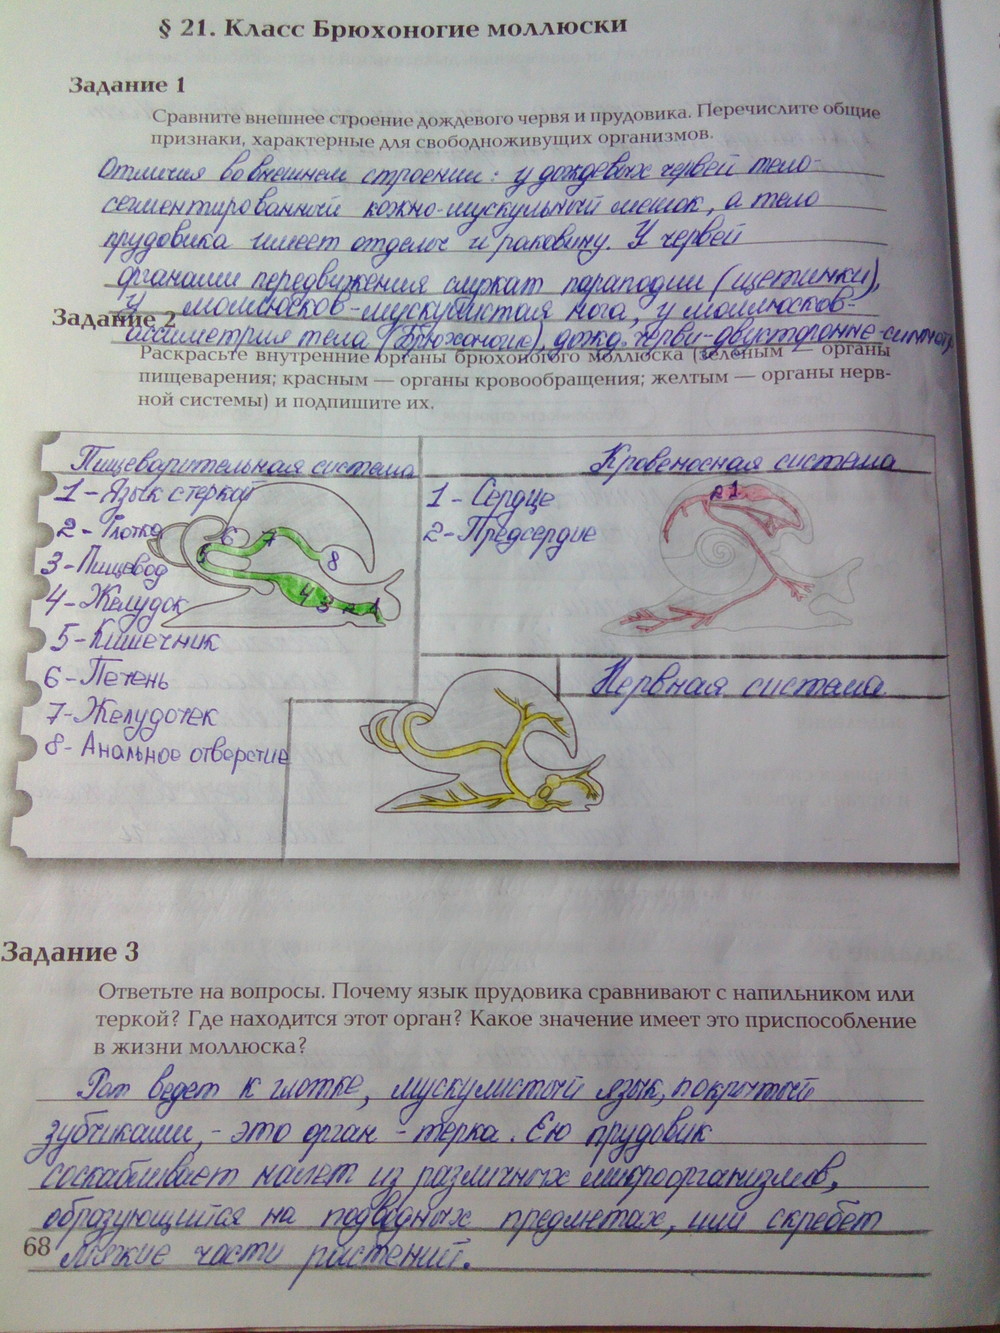 § 21. Класс Брюхоногие моллюски
Задание 1
Сравните внешнее строение дождевого червя и прудовика. Перечислите общие
признаки, характерные для свободноживущих организмов.
Отличия во внешнем строении: у дождевых червей тело-
сегментированный кожно-мускульный мешок, а тело
прудовика имеет отделы и раковину. У червей
органами передвижения служат параподии (щетинки),
у моллюсков-мускулистая нога, у моллюсков-
Задание 2
ассиметрия тела (Брюхоногие), дожд. черви-двусторонне-симметр.
Раскрасьте внутренние органы брюхоногого моллюска (зеленым — органы
пищеварения; красным — органы кровообращения; желтым — органы нерв-
ной системы) и подпишите их.
Пищеварительная система
1-Язык с теркой
2-Глотка
3-Пищевод
4-Желудок
5-Кишечник
6-Печень
7-Желудочек
8-Анальное отверстие
5 6 7 8 4 3 2 1
Кровеносная система
1-Сердце
2-Предсердие
2 1
Нервная система
Задание 3
Ответьте на вопросы. Почему язык прудовика сравнивают с напильником или
теркой? Где находится этот орган? Какое значение имеет это приспособление
в жизни моллюска?
Рот ведет к глотке, мускулистый язык, покрытый
зубчиками, - это орган - терка. Ею прудовик
соскабливает налет из различных микроорганизмов,
образующийся на подводных предметах, или скребет
мягкие части растений.
68